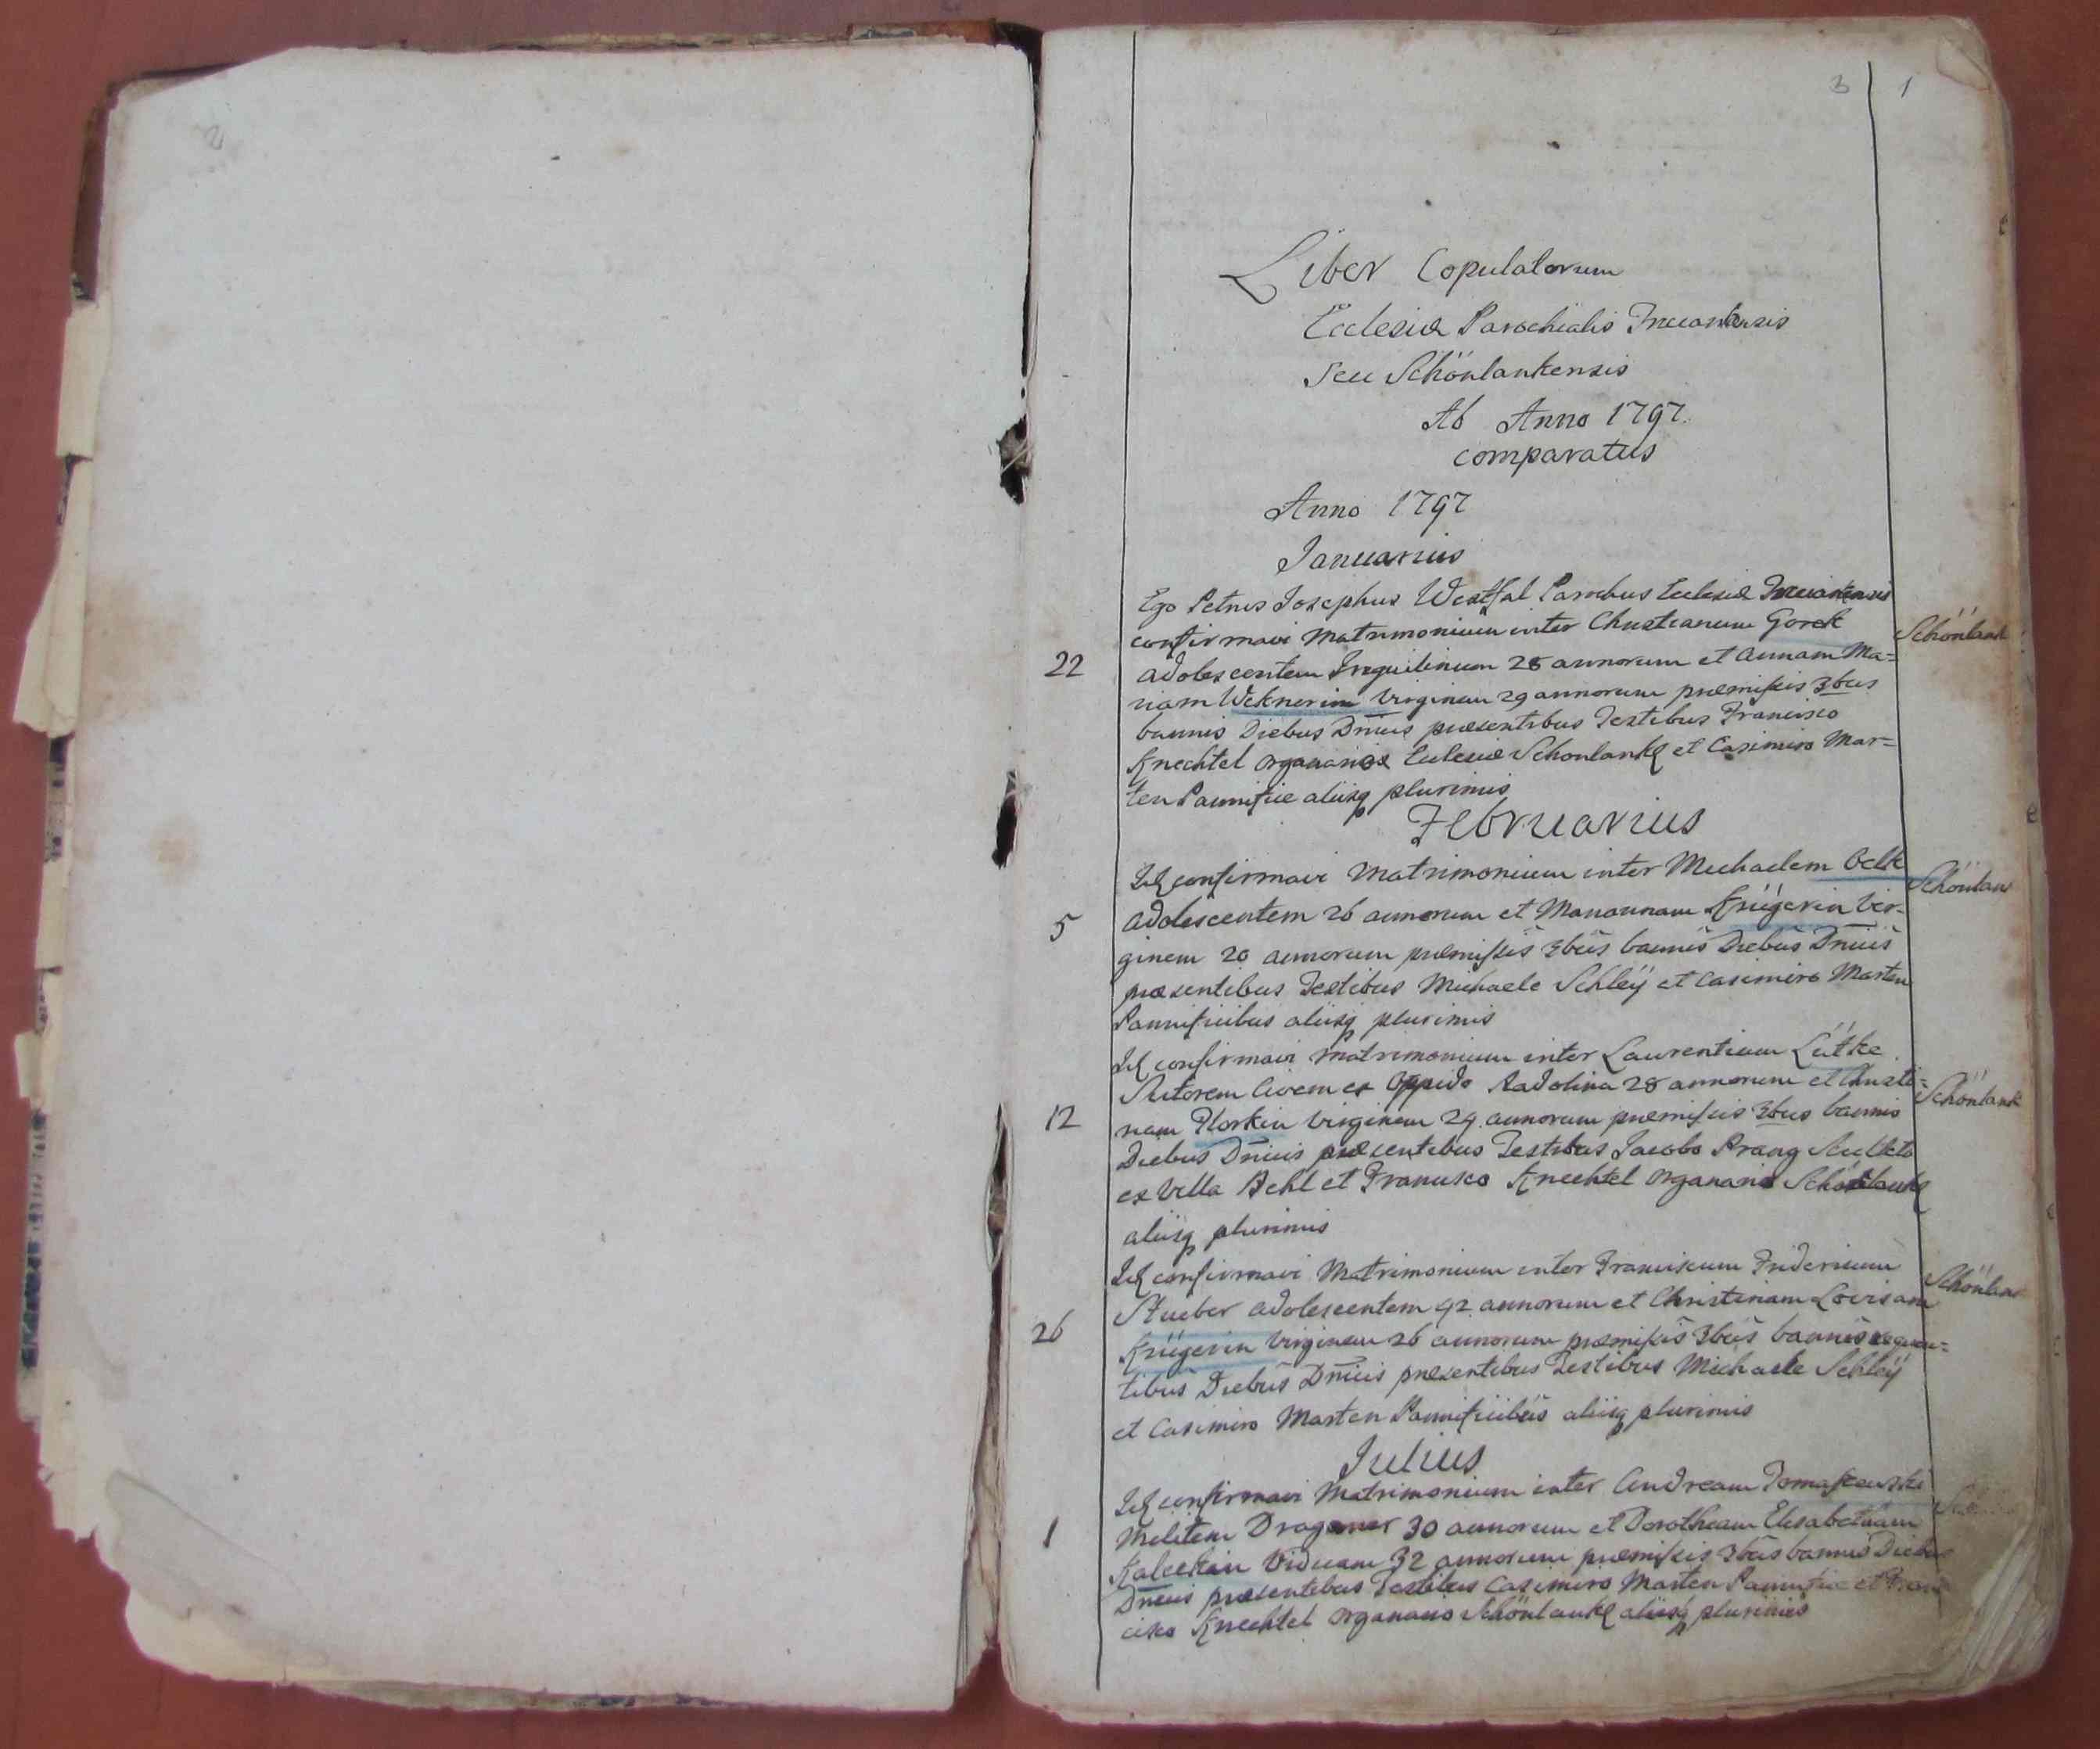 3
1
Liber Copulatorum
Ecclesiæ Parochialis
seu Schönlankensis
Ab Anno 1797.
comparatus
Anno 1797
Januarius
Ego Petrus Josephus Westfal Parochus Ecclesiæ
confirmavi Matrimonium inter Christianum Gorck
Schönlank
22
adolescentem Inquilinum 28 annorum et Annam Ma=
riam Weknerin Virginem 29 annorum præmissis 3bus
bannis Diebus Dnicis præsentibus Testibus Francisco
Knechtel Organario Ecclesiæ Schonlankę et Casimiro Mar=
ten Pannifice aliisq plurimis
Februarius
Id confirmavi Matrimonium inter Michaelem Belk
Schönlan
5
adolescentem 26 annorum et Mariannam Krügerin Vir=
ginem 20 annorum præmissis 3bus bannis Diebus Dnicis
præsentibus Testibus Michaele Schleÿ et Casimiro Marten
Pannificibus aliisq plurimis
Id confirmavi matrimonium inter Laurentium Lütke
Sutorem Civem ex Oppido Radolina 28 annorum et Christi=
Schönlank
12
nam Florkin Virginem 24 annorum præmissis 3bus bannis
Diebus Dnicis præsentibus Testibus Jacobo Prang Sculteto
ex Villa Behl et Francisco Knechtel Organario Schönlankę
aliisq plurimis
Id confirmavi Matrimonium inter Franciscum Fridericum
Schönlan
Stueber adolescentem 42 annorum et Christinam Lovisam
26
Krügerin Virginem 26 annorum præmissis 3bus bannis sequen=
tibus Diebus Dnicis præsentibus Testibus Michaele Schleÿ
et Casimiro Marten Pannificibus aliisq plurimis
Julius
Id confirmavi Matrimonium inter Andream Tomaszewski
1
Militem Dragoner 30 annorum et Dorotheam Elisabetham
Viduam 32 annorum præmissis 3bus bannis Diebus
Dnicis præsentibus Testibus Casimiro Marten Pannifice et Fran
cisco Knechtel Organario Schönlankę aliisq plurimis